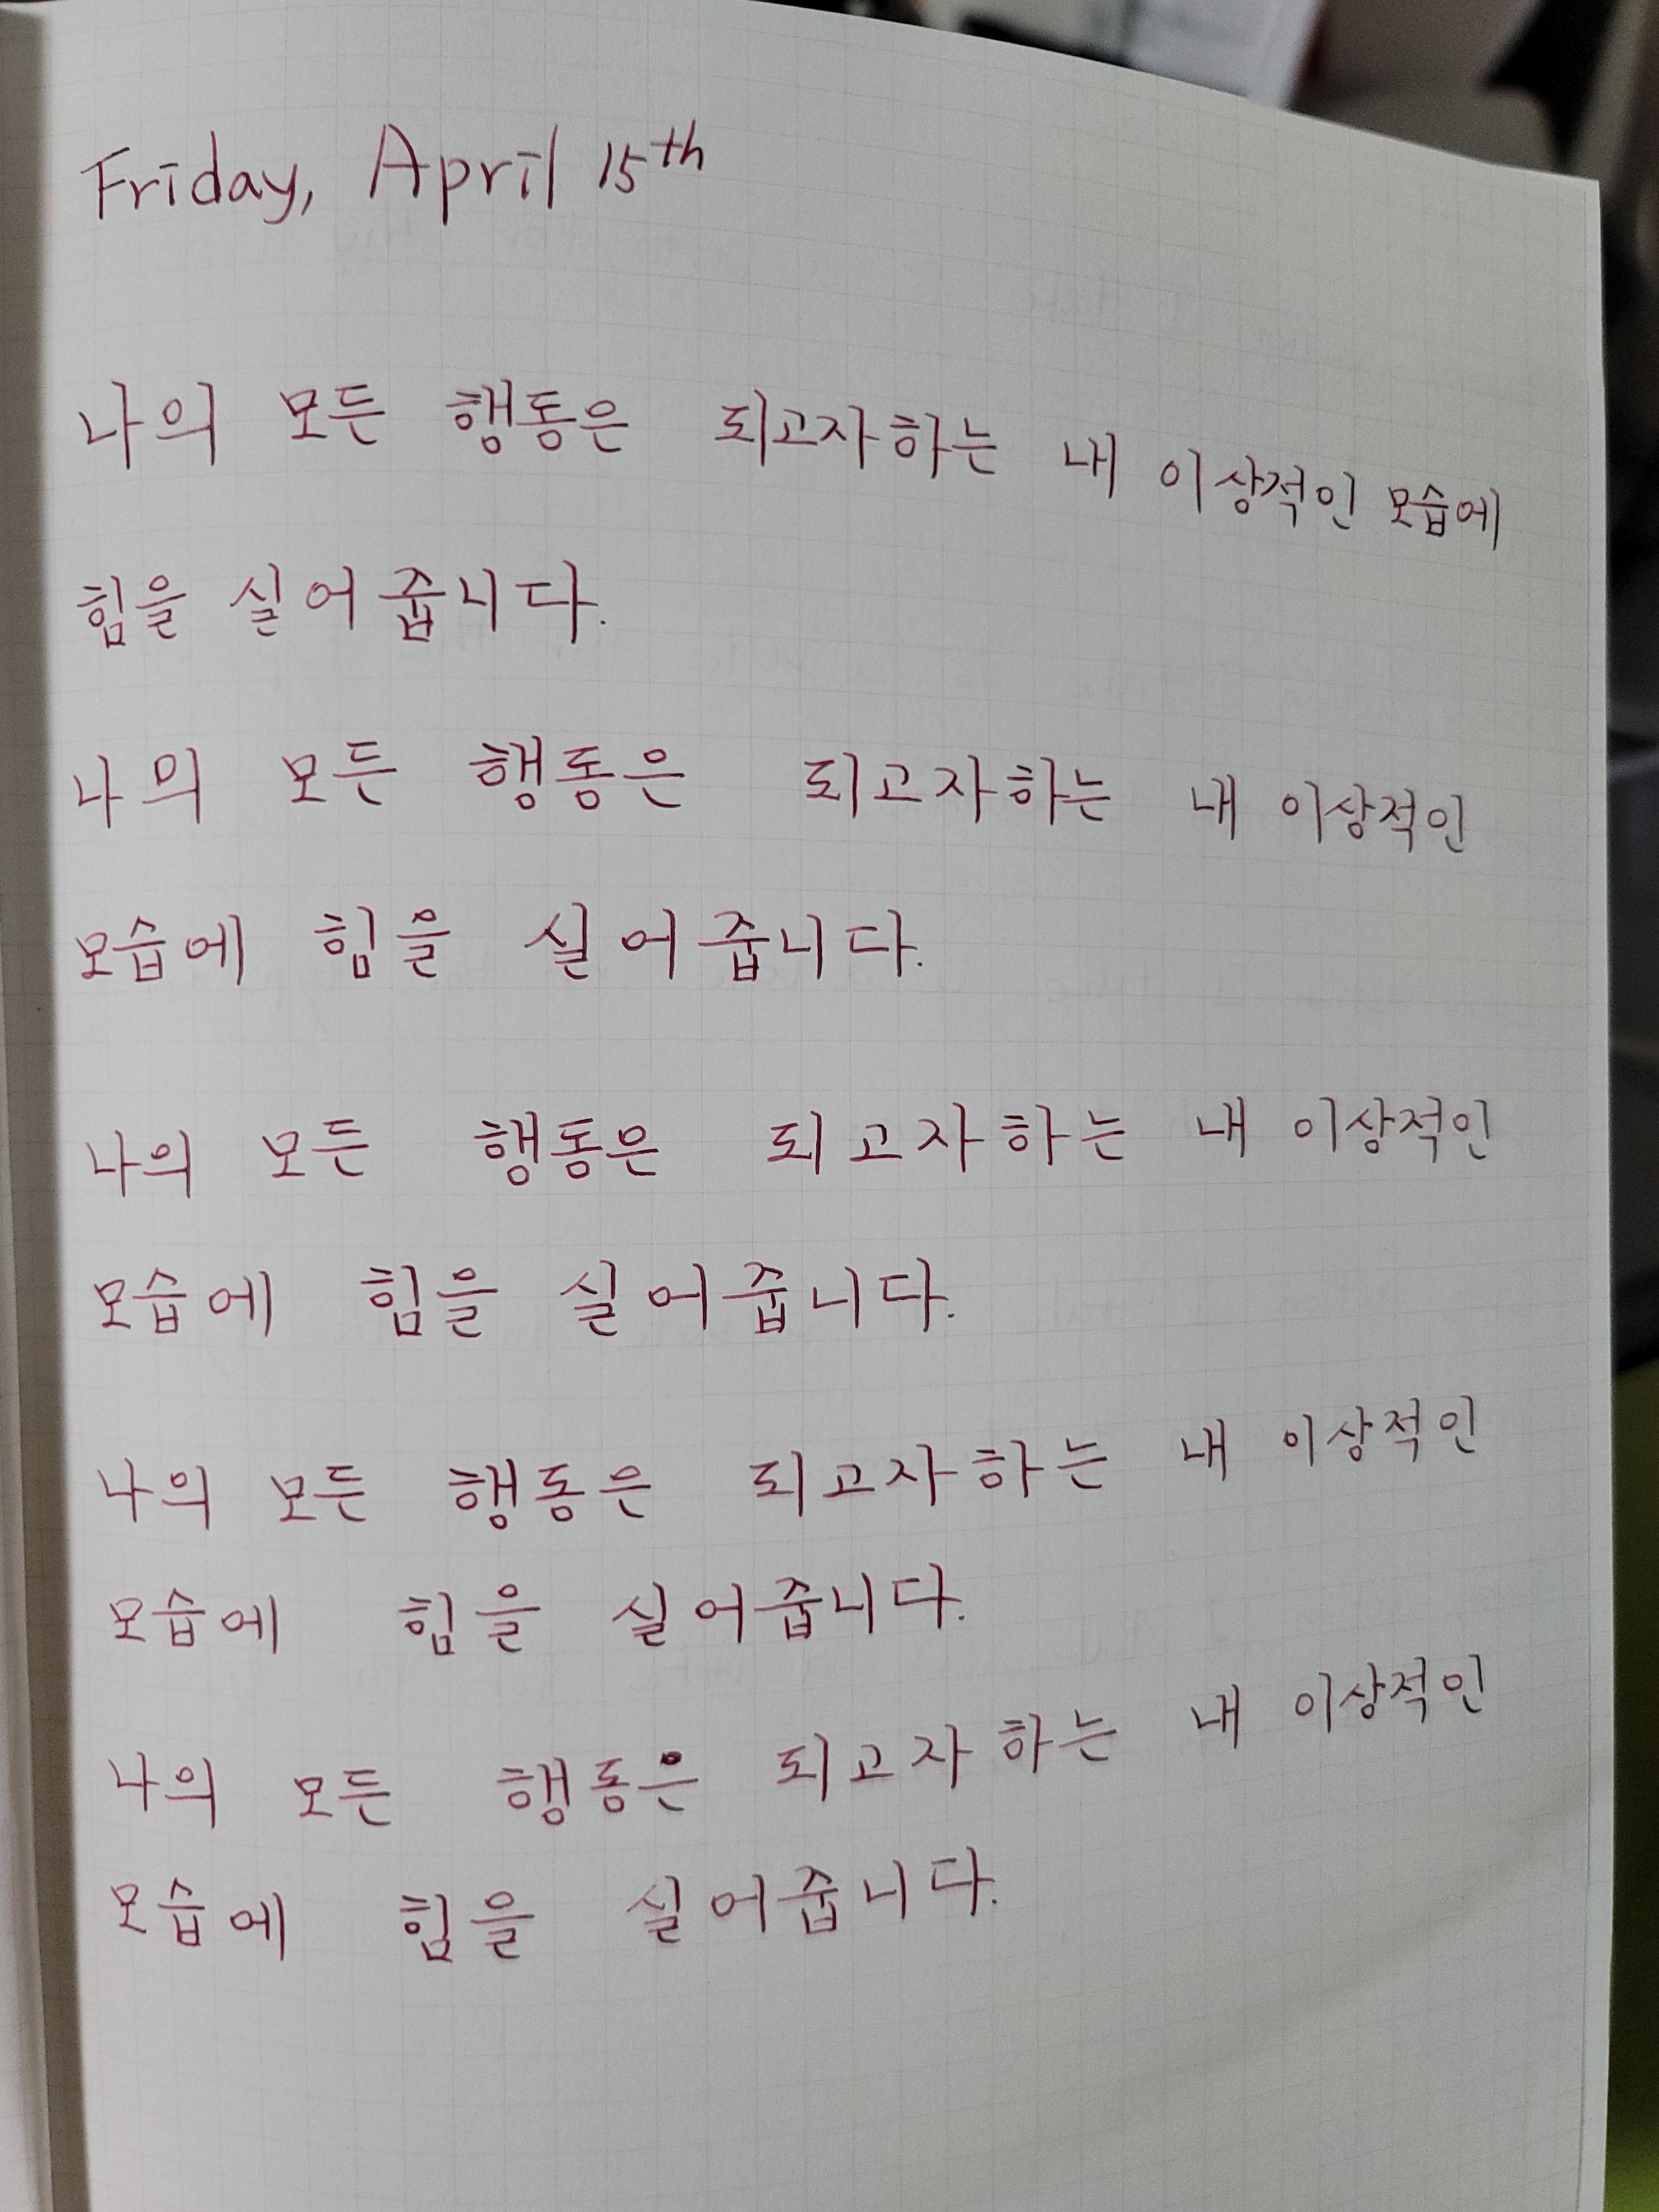 Friday, April 15th
나의 모든 행동은 되고자하는 내 이상적인 모습에
힘을 실어줍니다.
나의 모든 행동은 되고자하는 내 이상적인
모습에 힘을 실어줍니다.
나의 모든 행동은 되고자하는 내 이상적인
모습에 힘을 실어줍니다.
나의 모든 행동은 되고자하는 내 이상적인
모습에 힘을 실어줍니다.
나의 모든 행동은 되고자하는 내 이상적인
모습에 힘을 실어줍니다.